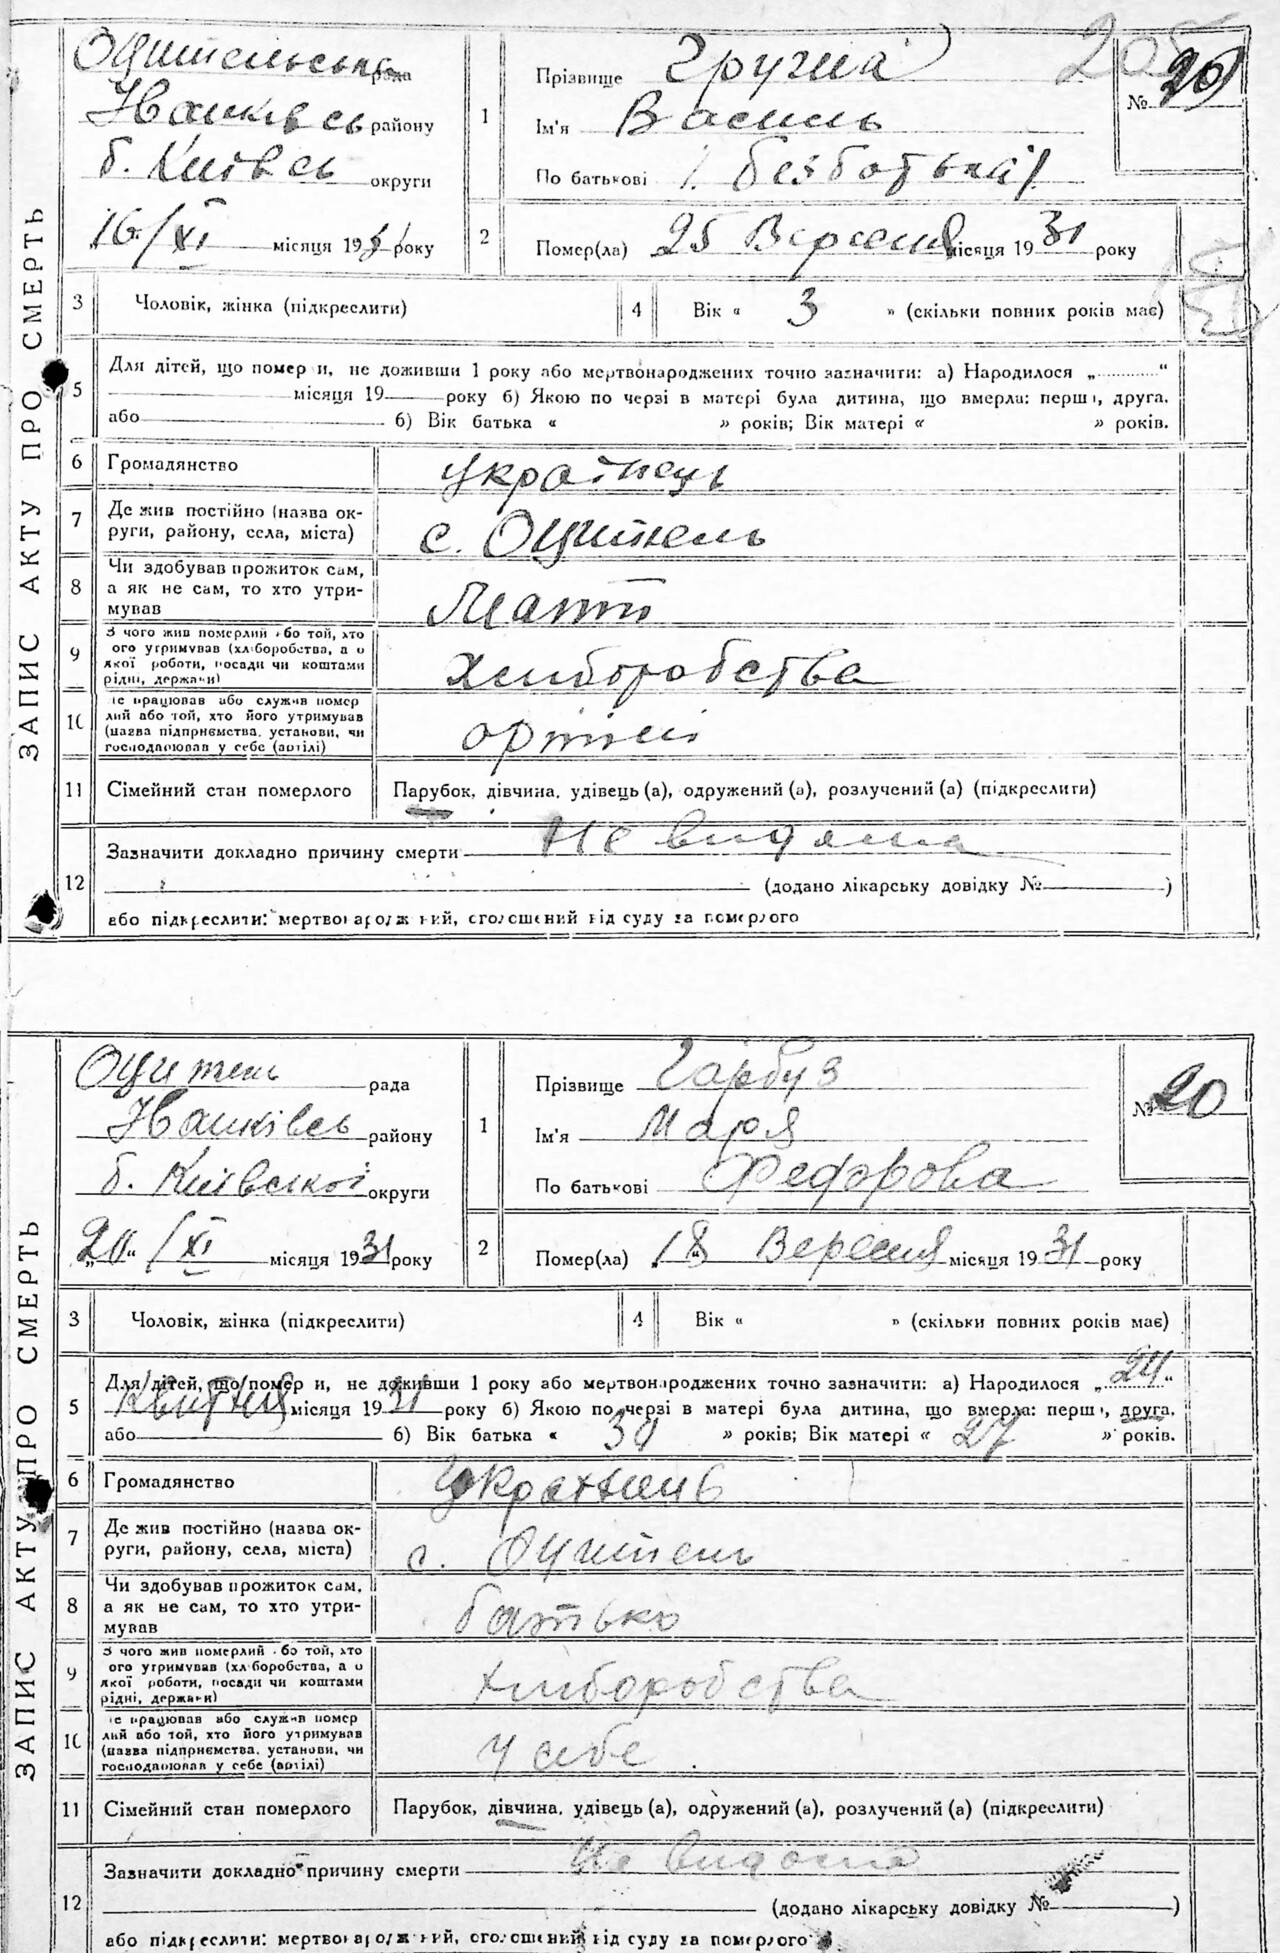 ЗАПИС АКТУ ПРО СМЕРТЬ
Оцительська рада
Іванківсь району
б. Київсь округи
16/XI місяця 1931 року
1
Прізвище
Ім'я Василь
По батькові (безботькі)
№ 20
2
Помер(ла) 25 Вересня місяця 1931 року
3 Чоловік, жінка (підкреслити)
4 Вік « 3 » (скільки повних років має)
5 Для дітей, що померли, не доживши 1 року або мертвонароджених точно зазначити: а) Народилося „ “
місяця 19 року б) Якою по черзі в матері була дитина, що вмерла: перша, друга,
або б) Вік батька « » років; Вік матері « » років.
6 Громадянство українець
7 Де жив постійно (назва ок-
руги, району, села, міста) с. Оцитель
8 Чи здобував прожиток сам,
а як не сам, то хто утри-
мував Мати
9 З чого жив померлий або той, хто
його утримував (хліборобства, а о
якої роботи, посади чи коштами
рідні, держави) Хліборобства
10 Де працював або служив помер
лий або той, хто його утримував
(назва підприємства, установи, чи
господарював у себе (артілі) артілі
11 Сімейний стан померлого Парубок, дівчина, удівець (а), одружений (а), розлучений (а) (підкреслити)
12 Зазначити докладно причину смерти Не видома
(додано лікарську довідку № )
або підкреслити: мертвонароджений, оголошений від суду за померлого
ЗАПИС АКТУ ПРО СМЕРТЬ
Оцитель рада
Іванківсь району
б. Київської округи
„20“ /XI місяця 1931 року
1
Прізвище Гарбуз
Ім'я Маря
По батькові Федорова
№ 20
2
Помер(ла) „18“ Вересня місяця 1931 року
3 Чоловік, жінка (підкреслити)
4 Вік « » (скільки повних років має)
5 Для дітей, що померли, не доживши 1 року або мертвонароджених точно зазначити: а) Народилося „24“
Квитня місяця 1931 року б) Якою по черзі в матері була дитина, що вмерла: перша, друга,
або б) Вік батька « 30 » років; Вік матері « 27 » років.
6 Громадянство
7 Де жив постійно (назва ок-
руги, району, села, міста) с. Оцитель
8 Чи здобував прожиток сам,
а як не сам, то хто утри-
мував батько
9 З чого жив померлий або той, хто
його утримував (хліборобства, а о
якої роботи, посади чи коштами
рідні, держави) хліборобства
10 Де працював або служив помер
лий або той, хто його утримував
(назва підприємства, установи, чи
господарював у себе (артілі) у себе
11 Сімейний стан померлого Парубок, дівчина, удівець (а), одружений (а), розлучений (а) (підкреслити)
12 Зазначити докладно причину смерти Не видома
(додано лікарську довідку № )
або підкреслити: мертвонароджений, оголошений від суду за померлого